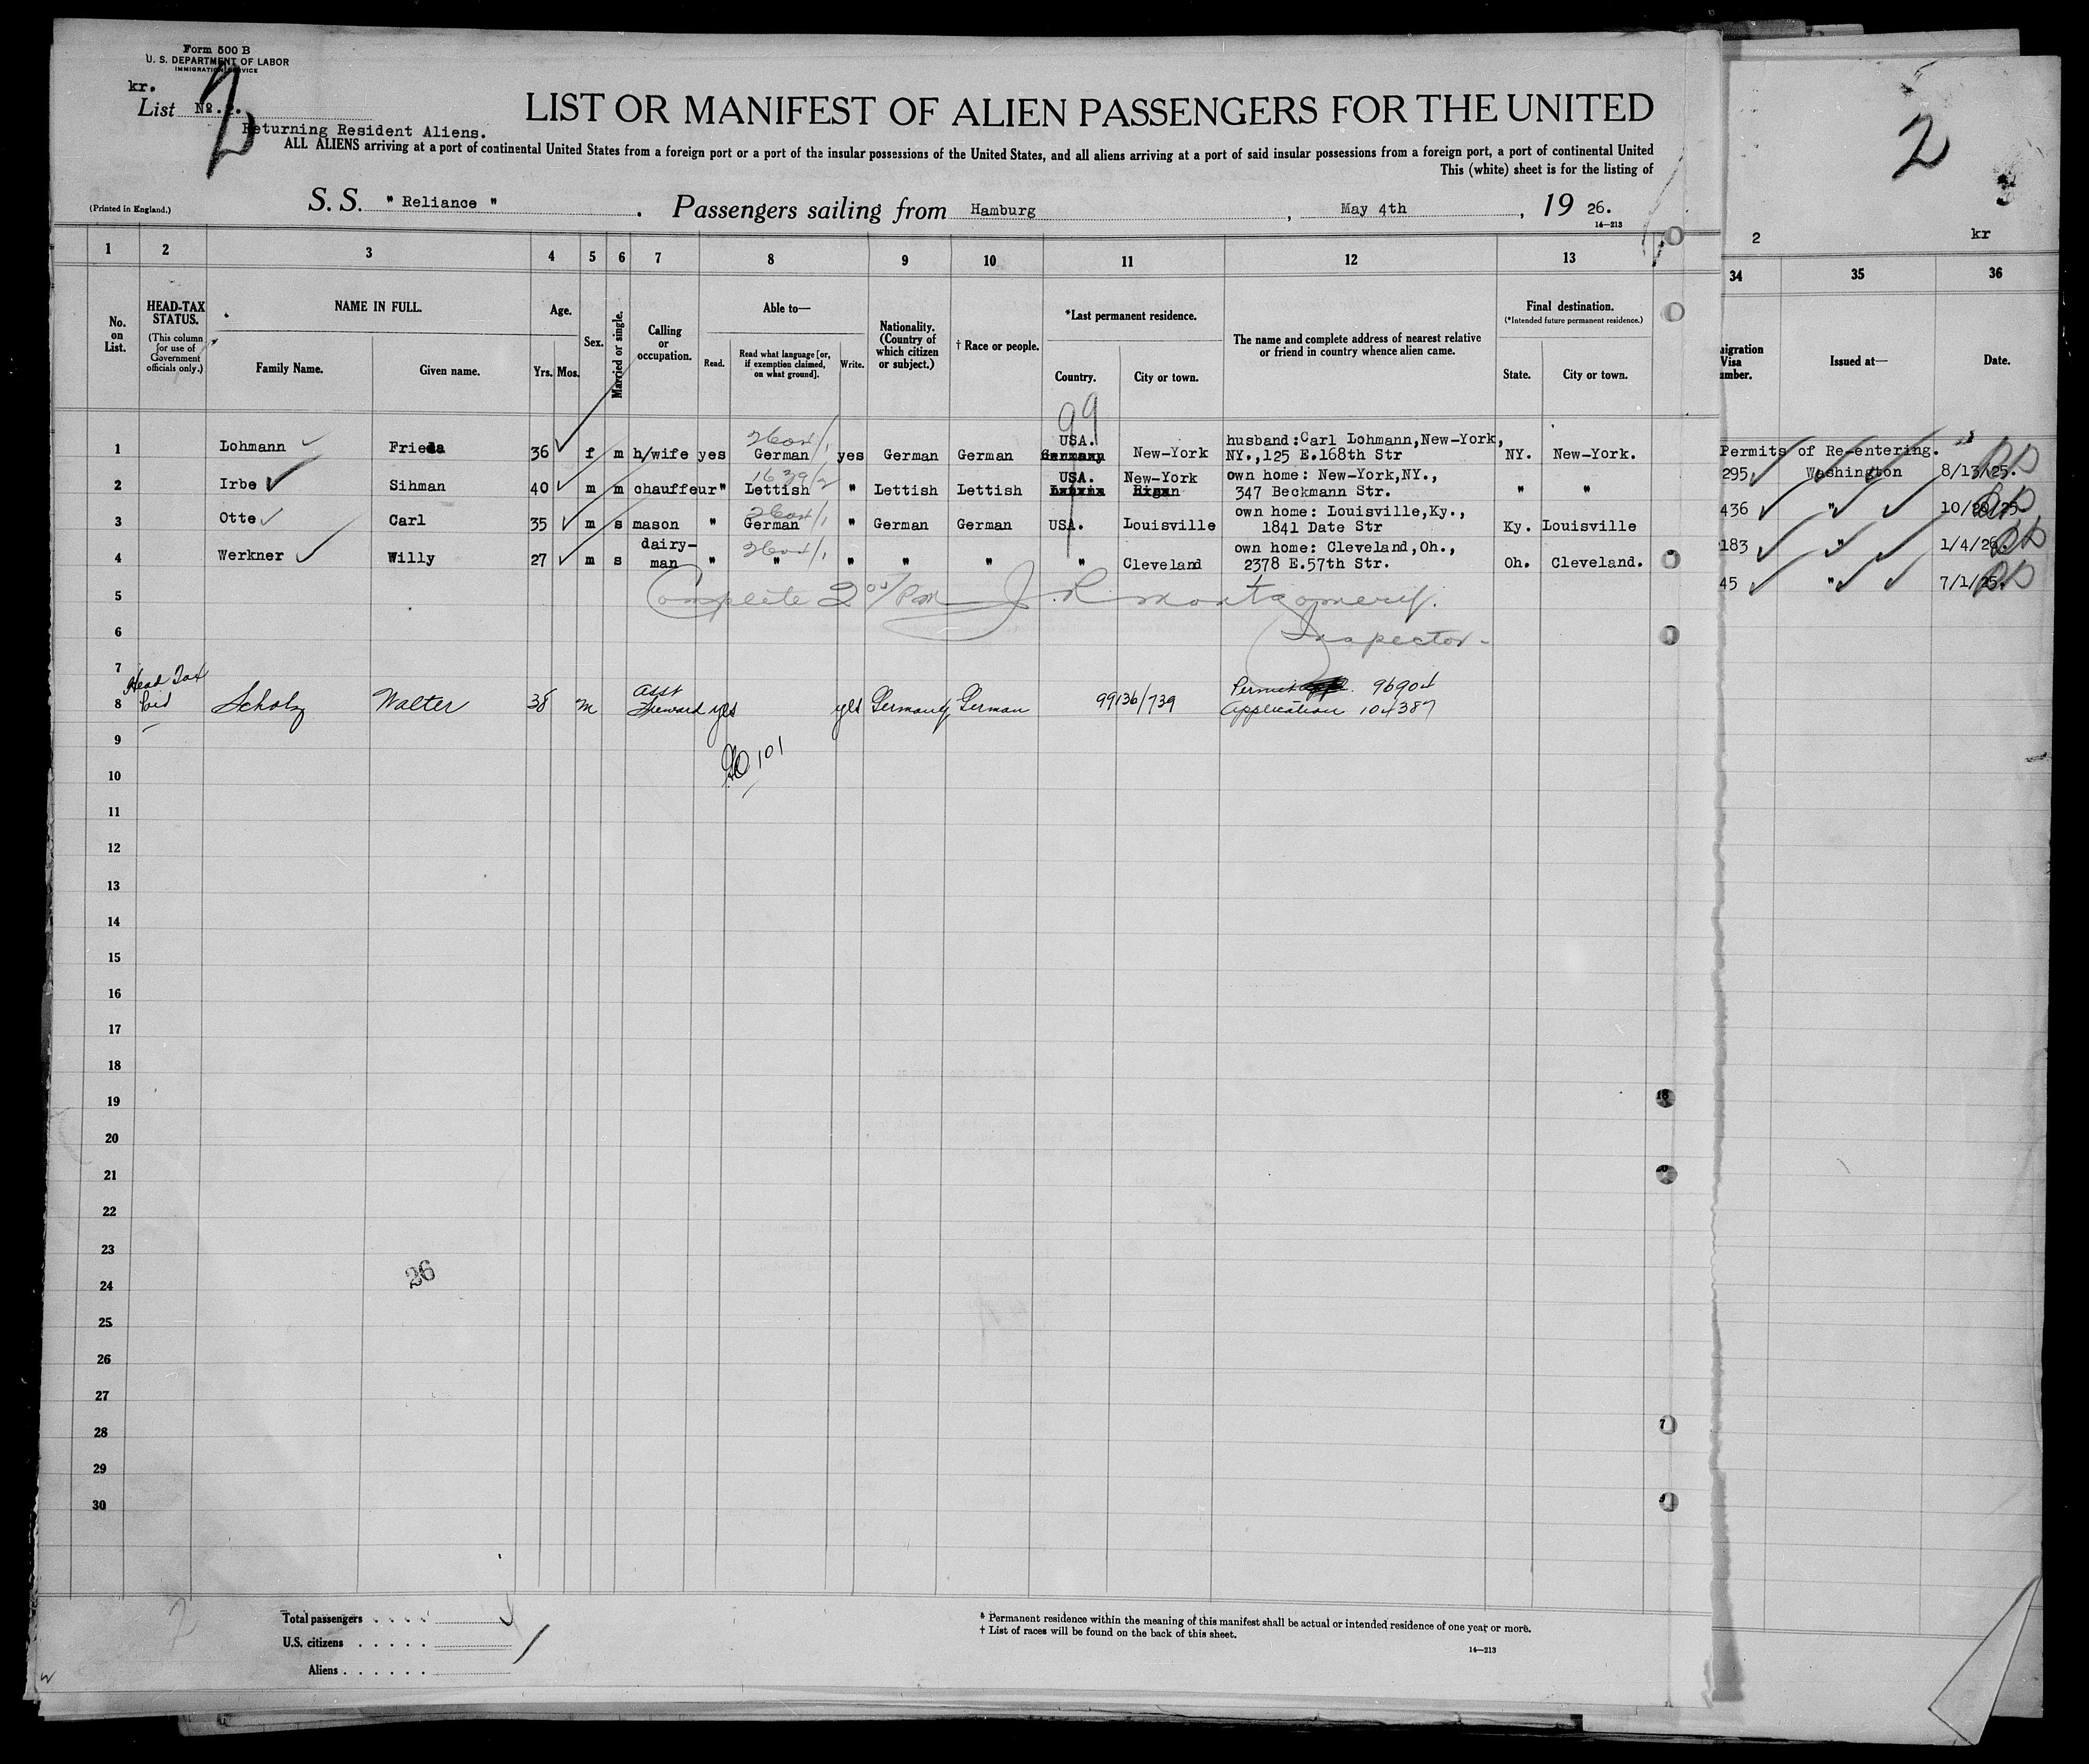 Form 500 B
U. S. DEPARTMENT OF LABOR
IMMIGRATION SERVICE
kr.
List No.
2
Returning Resident Aliens.
LIST OR MANIFEST OF ALIEN PASSENGERS FOR THE UNITED
ALL ALIENS arriving at a port of continental United States from a foreign port or a port of the insular possessions of the United States, and all aliens arriving at a port of said insular possessions from a foreign port, a port of continental United
This (white) sheet is for the listing of
(Printed in England.)
S. S. " Reliance " . Passengers sailing from Hamburg , May 4th , 19 26.
14—213
1 2 3 4 5 6 7 8 9 10 11 12 13
No. on List.
HEAD-TAX STATUS.
(This column for use of Government officials only.)
NAME IN FULL.
Family Name. Given name.
Age.
Yrs. Mos.
Sex.
Married or single.
Calling or occupation.
Able to—
Read. Read what language [or, if exemption claimed, on what ground]. Write.
Nationality. (Country of which citizen or subject.)
† Race or people.
*Last permanent residence.
Country. City or town.
The name and complete address of nearest relative or friend in country whence alien came.
Final destination.
(*Intended future permanent residence.)
State. City or town.
99
1 Lohmann Frieda 36 f m h/wife yes German yes German German USA. Germany New-York husband:Carl Lohmann,New-York, NY.,125 E.168th Str NY. New-York.
2 Irbe Sihman 40 m m chauffeur " 1639/2 Lettish " Lettish Lettish USA. New-York own home: New-York,NY., 347 Beckmann Str. " "
3 Otte Carl 35 m s mason " German " German German USA. Louisville own home: Louisville,Ky., 1841 Date Str Ky. Louisville
4 Werkner Willy 27 m s dairy-man " " " " " " Cleveland own home: Cleveland,Oh., 2378 E.57th Str. Oh. Cleveland.
5 Complete 2 00/PM J R Montgomery.
6 Inspector
7
8 Head Tax Paid Scholz Walter 38 m Asst Steward yes yes Germany German 99136/739 Permit 96904 Application 104387
9
101
10
11
12
13
14
15
16
17
18
19
20
21
22
23
26
24
25
26
27
28
29
30
Total passengers . . . .
U.S. citizens . . . . .
Aliens . . . . . .
* Permanent residence within the meaning of this manifest shall be actual or intended residence of one year or more.
† List of races will be found on the back of this sheet.
14—213
2
2 kr
34 35 36
Issued at— Date.
Permits of Re-entering.
295 Washington 8/13/25.
436 " 10/20/25.
183 " 1/4/26.
45 " 7/1/25.